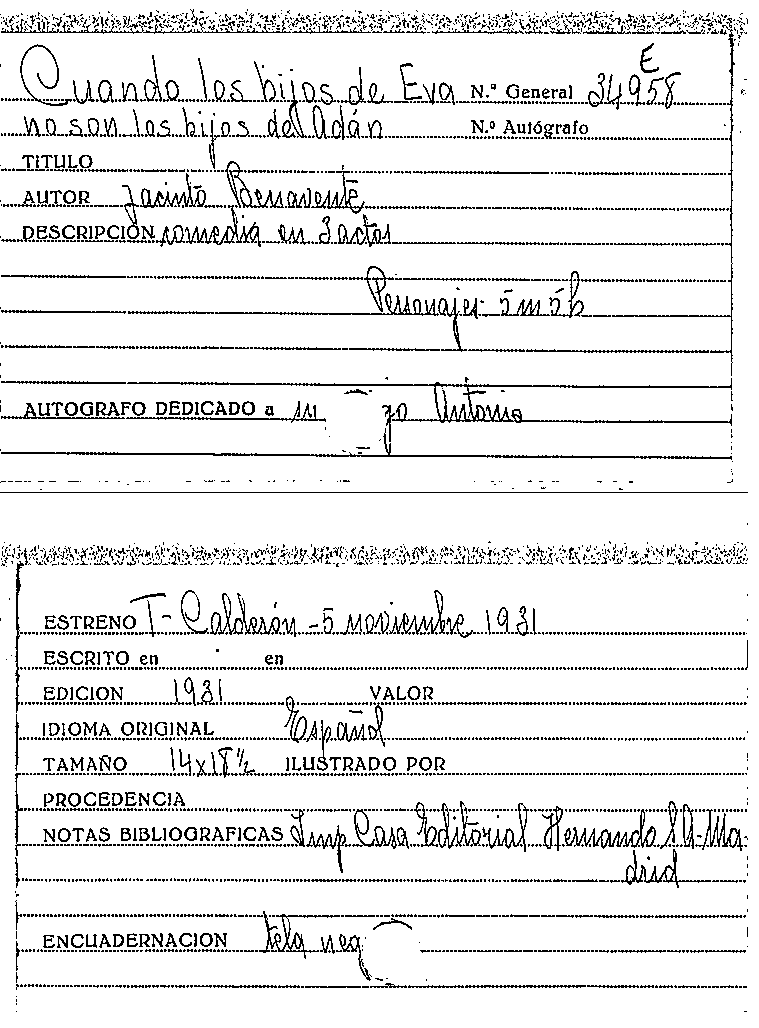 E
Cuando los hijos de Eva N.º General 34958
no son los hijos de Adán N.º Autógrafo
TITULO
AUTOR Jacinto Benavente
DESCRIPCIÓN comedia en 3 actos
Personajes 5 m 5 h
AUTOGRAFO DEDICADO a su Antonio
ESTRENO T- Calderón - 5 noviembre 1931
ESCRITO en en
EDICION 1931 VALOR
IDIOMA ORIGINAL Español
TAMAÑO 14x18 ½ ILUSTRADO POR
PROCEDENCIA
NOTAS BIBLIOGRAFICAS Imp Casa Editorial Hernando S.A-Ma-
drid
ENCUADERNACION tela neg